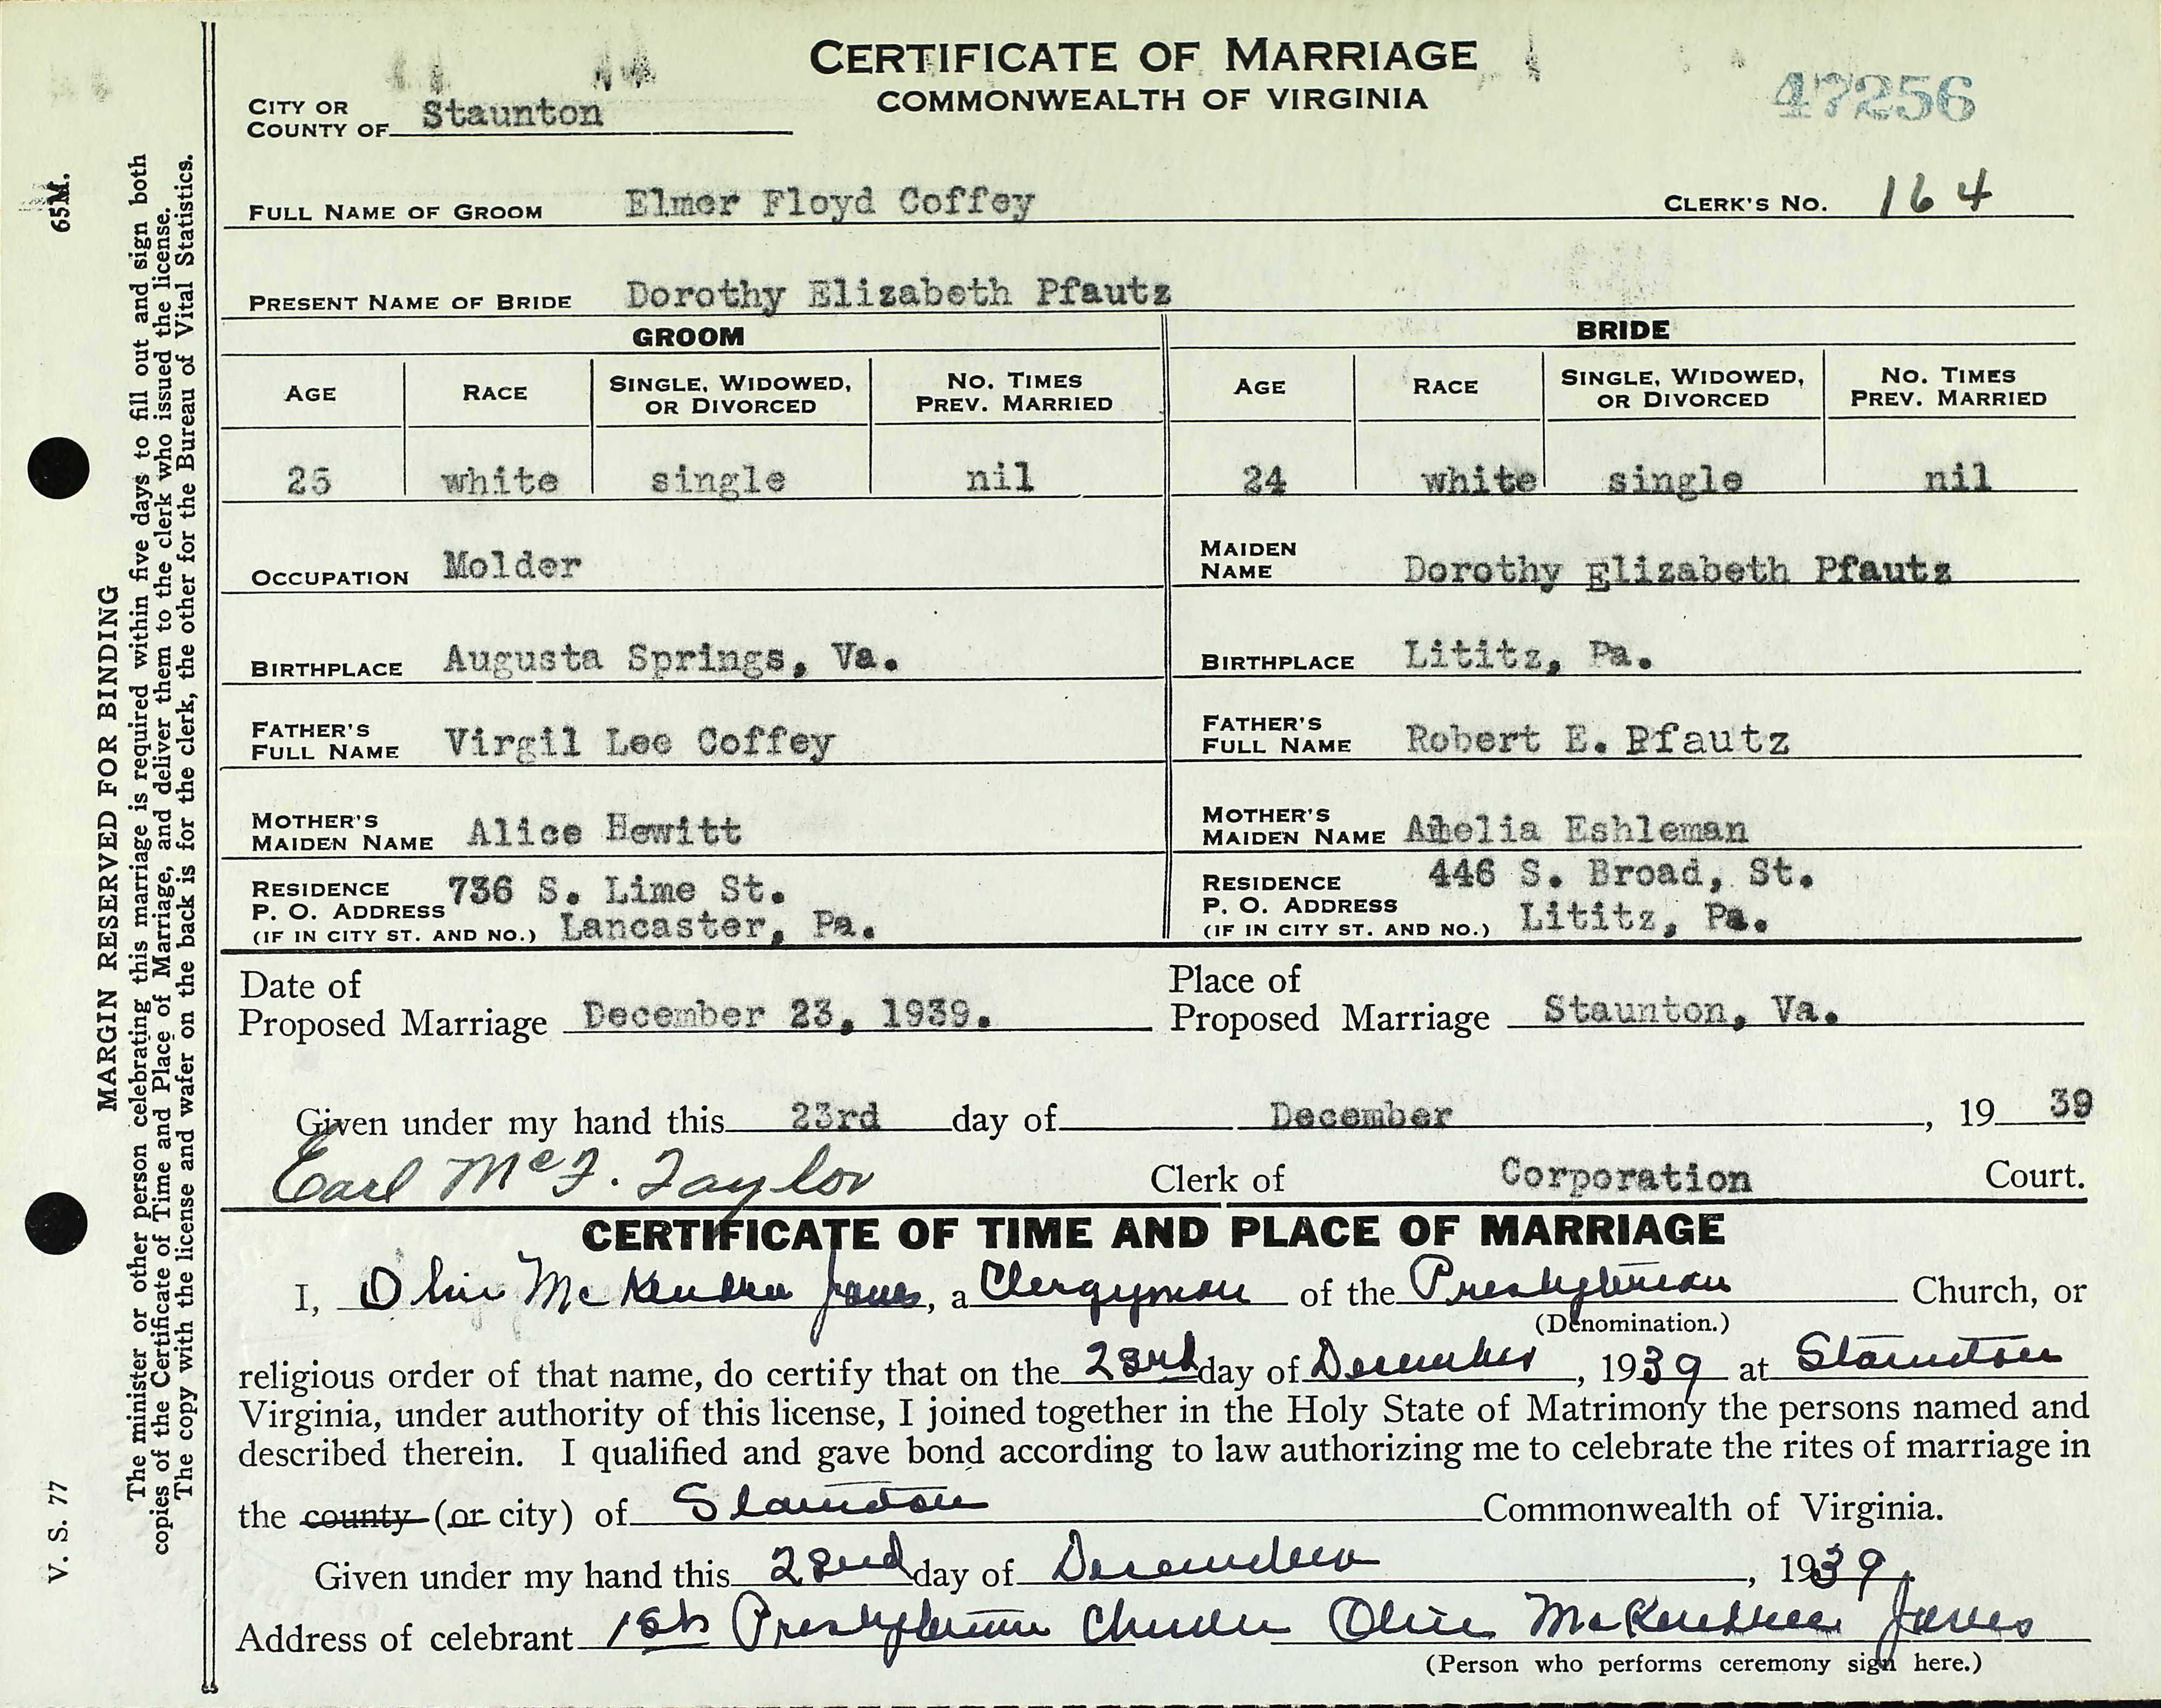 CERTIFICATE OF MARRIAGE
COMMONWEALTH OF VIRGINIA
47256
CITY OR
COUNTY OF Staunton
FULL NAME OF GROOM Elmer Floyd Coffey CLERK'S NO. 164
PRESENT NAME OF BRIDE Dorothy Elizabeth Pfautz
GROOM BRIDE
AGE RACE SINGLE, WIDOWED, OR DIVORCED NO. TIMES PREV. MARRIED AGE RACE SINGLE, WIDOWED, OR DIVORCED NO. TIMES PREV. MARRIED
25 white single nil 24 white single nil
OCCUPATION Molder MAIDEN NAME Dorothy Elizabeth Pfautz
BIRTHPLACE Augusta Springs, Va. BIRTHPLACE Lititz, Pa.
FATHER'S FULL NAME Virgil Lee Coffey FATHER'S FULL NAME Robert E. Pfautz
MOTHER'S MAIDEN NAME Alice Hewitt MOTHER'S MAIDEN NAME Amelia Eshleman
RESIDENCE P. O. ADDRESS (IF IN CITY ST. AND NO.) 736 S. Lime St. Lancaster, Pa. RESIDENCE P. O. ADDRESS (IF IN CITY ST. AND NO.) 446 S. Broad, St. Lititz, Pa.
Date of Proposed Marriage December 23, 1939. Place of Proposed Marriage Staunton, Va.
Given under my hand this 23rd day of December, 1939
Earl McF. Taylor Clerk of Corporation Court.
CERTIFICATE OF TIME AND PLACE OF MARRIAGE
I, Olin McKendree Jones, a Clergyman of the Presbyterian Church, or
(Denomination.)
religious order of that name, do certify that on the 23rd day of December, 1939 at Staunton
Virginia, under authority of this license, I joined together in the Holy State of Matrimony the persons named and
described therein. I qualified and gave bond according to law authorizing me to celebrate the rites of marriage in
the county (or city) of Staunton Commonwealth of Virginia.
Given under my hand this 23rd day of December, 1939.
Address of celebrant 1st Presbyterian Church Olin McKendree Jones
(Person who performs ceremony sign here.)
65M.
MARGIN RESERVED FOR BINDING
The minister or other person celebrating this marriage is required within five days to fill out and sign both
copies of the Certificate of Time and Place of Marriage, and deliver them to the clerk who issued the license.
The copy with the license and wafer on the back is for the clerk, the other for the Bureau of Vital Statistics.
V. S. 77